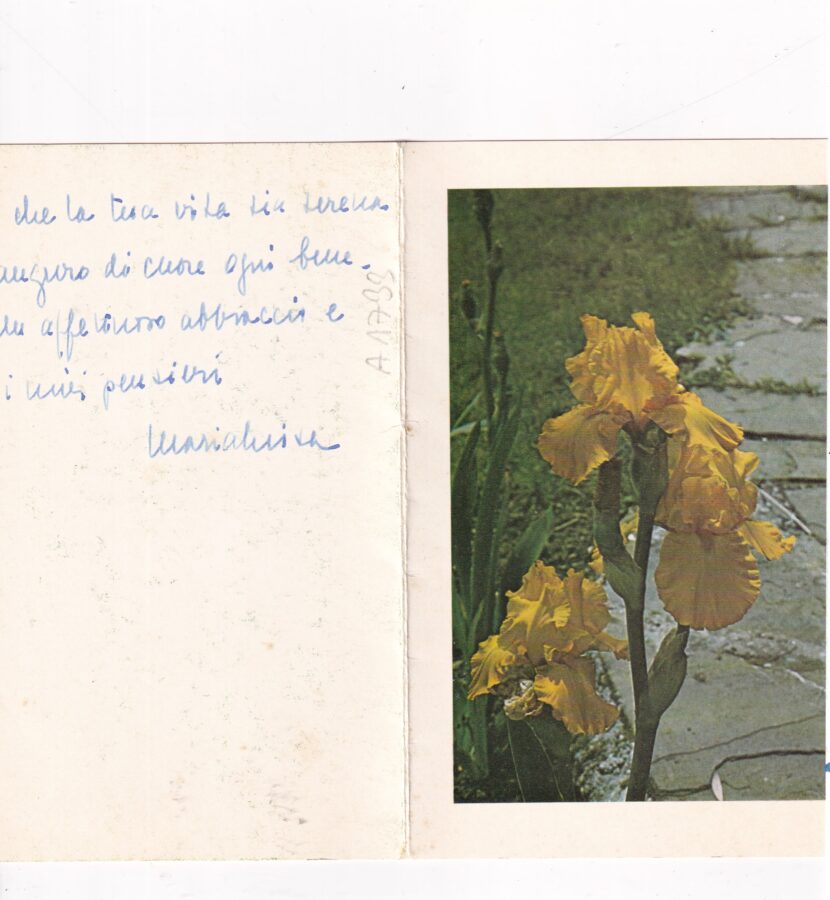 che la tua vita sia serena
auguro di cuore ogni bene.
affettuoso abbraccio e
i miei pensieri
Marialuisa
A1799